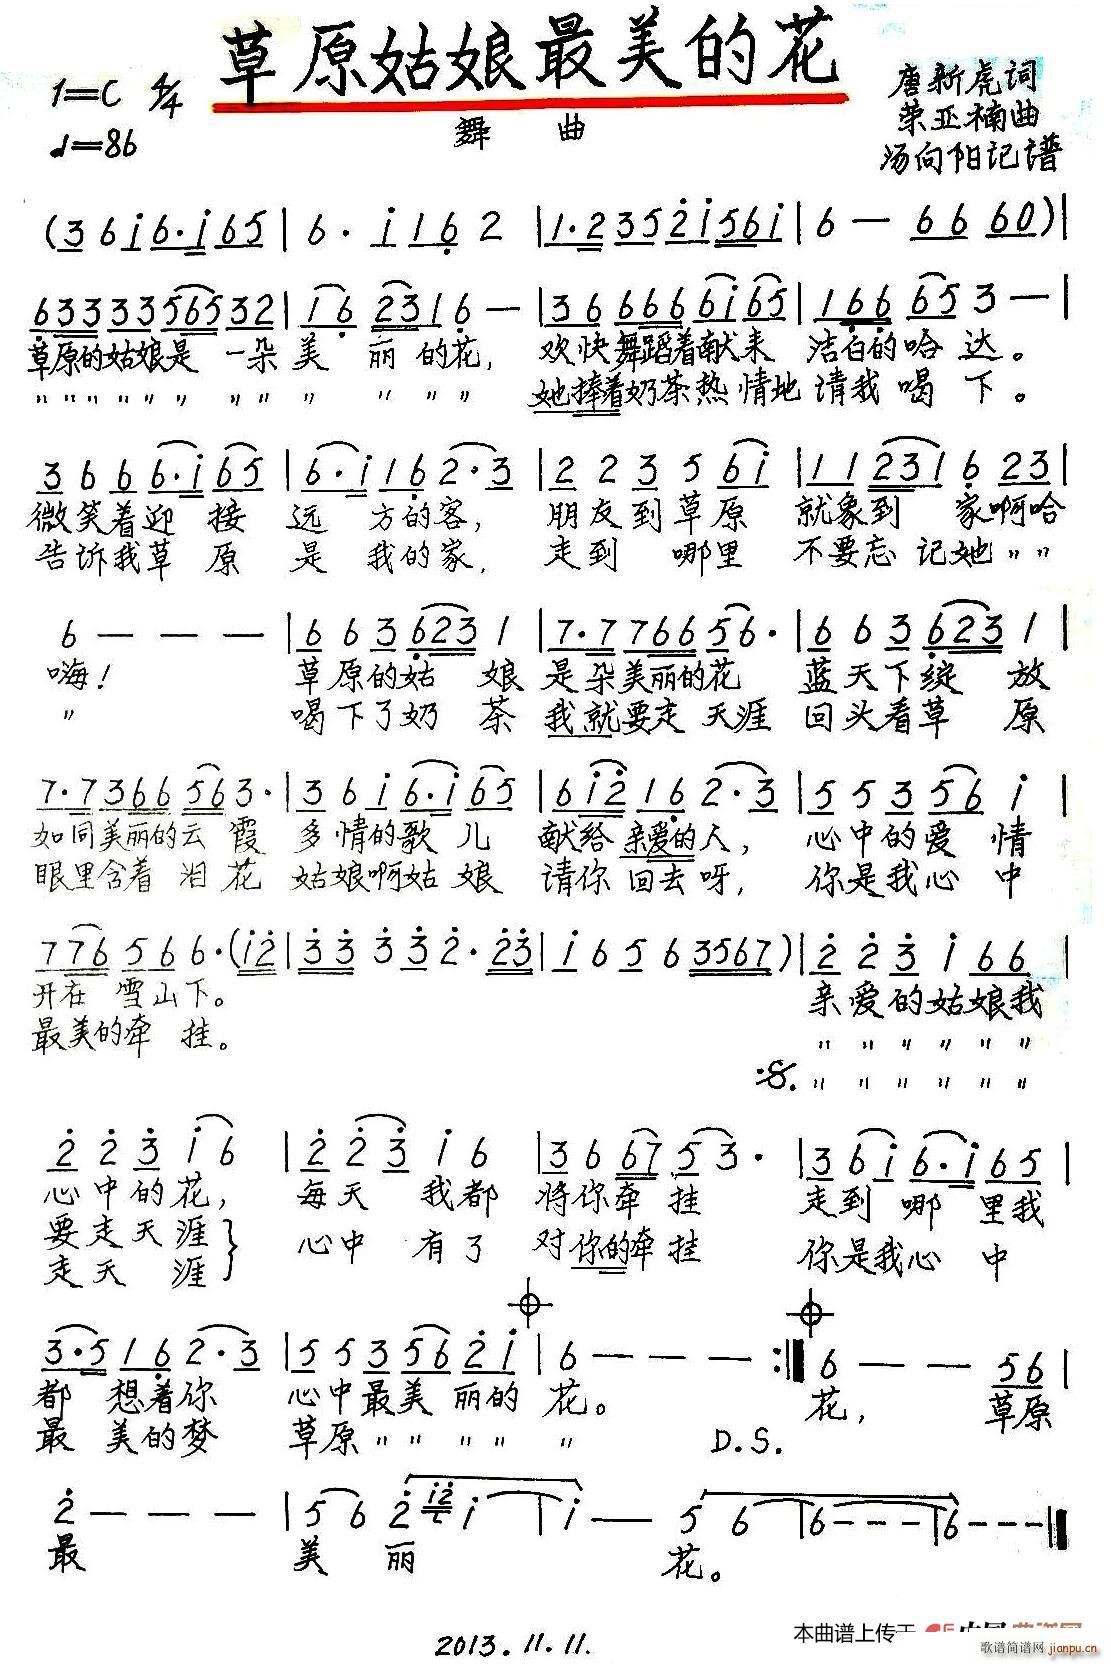 草原姑娘最美的花
1=C 4/4
♩=86
舞 曲
唐新虎词
荣亚楠曲
汤向阳记谱
(3 6 i 6·i 65 | 6· i 16 2 | 1·2 35 2i 56i | 6 — 66 60) |
6333356532 | 16 2316 — | 36 666 6i65 | 166 65 3 — |
草原的姑娘是一朵美丽的花, 欢快舞蹈着献来洁白的哈达。
〃〃〃〃〃〃〃〃〃〃〃〃 她捧着奶茶热情地请我喝下。
3 6 6 6·i 65 | 6·i 16 2·3 | 2 2 3 5 6i | 11 231 6 23 |
微笑着迎接远方的客, 朋友到草原就象到家啊哈
告诉我草原是我的家, 走到哪里不要忘记她〃〃
6 — — — | 6 6 3 623 1 | 7·7 766 56· | 6 6 3 623 1 |
嗨! 草原的姑娘是朵美丽的花 蓝天下绽放
〃 喝下了奶茶我就要走天涯 回头看草原
7·7 366 56 3· | 3 6 i 6·i 65 | 6i2 16 2·3 | 5 5 3 56 i |
如同美丽的云霞 多情的歌儿献给亲爱的人, 心中的爱情
眼里含着泪花 姑娘啊姑娘请你回去呀, 你是我心中
7 76 5 6 6·(i2 | 3 3 3 3 2·23 | i 6 5 6 3567) | 2 2 3 i 66 |
开在雪山下。 亲爱的姑娘我
最美的牵挂。 〃〃〃〃〃〃
𝄋. 〃〃〃〃〃〃
2 2 3 i 6 | 2 2 3 i 6 | 3 6 67 5 3· | 3 6 i 6·i 65 |
心中的花, 每天我都将你牵挂 走到哪里我
要走天涯 } 心中有了对你的牵挂 你是我心中
走天涯
3·5 16 2·3 | 5 5 3 56 2 i | 6 — — — :‖ 6 — — 56 |
都想着你 心中最美丽的花。 花, 草原
最美的梦 草原〃〃〃〃〃 D.S.
2 — — — | 5 6 2 i2 i | i — 5 6 | 6 — — — | 6 — — — ‖
最 美丽 花。
2013.11.11.
本曲谱上传于
歌谱简谱网
jianpu.cn